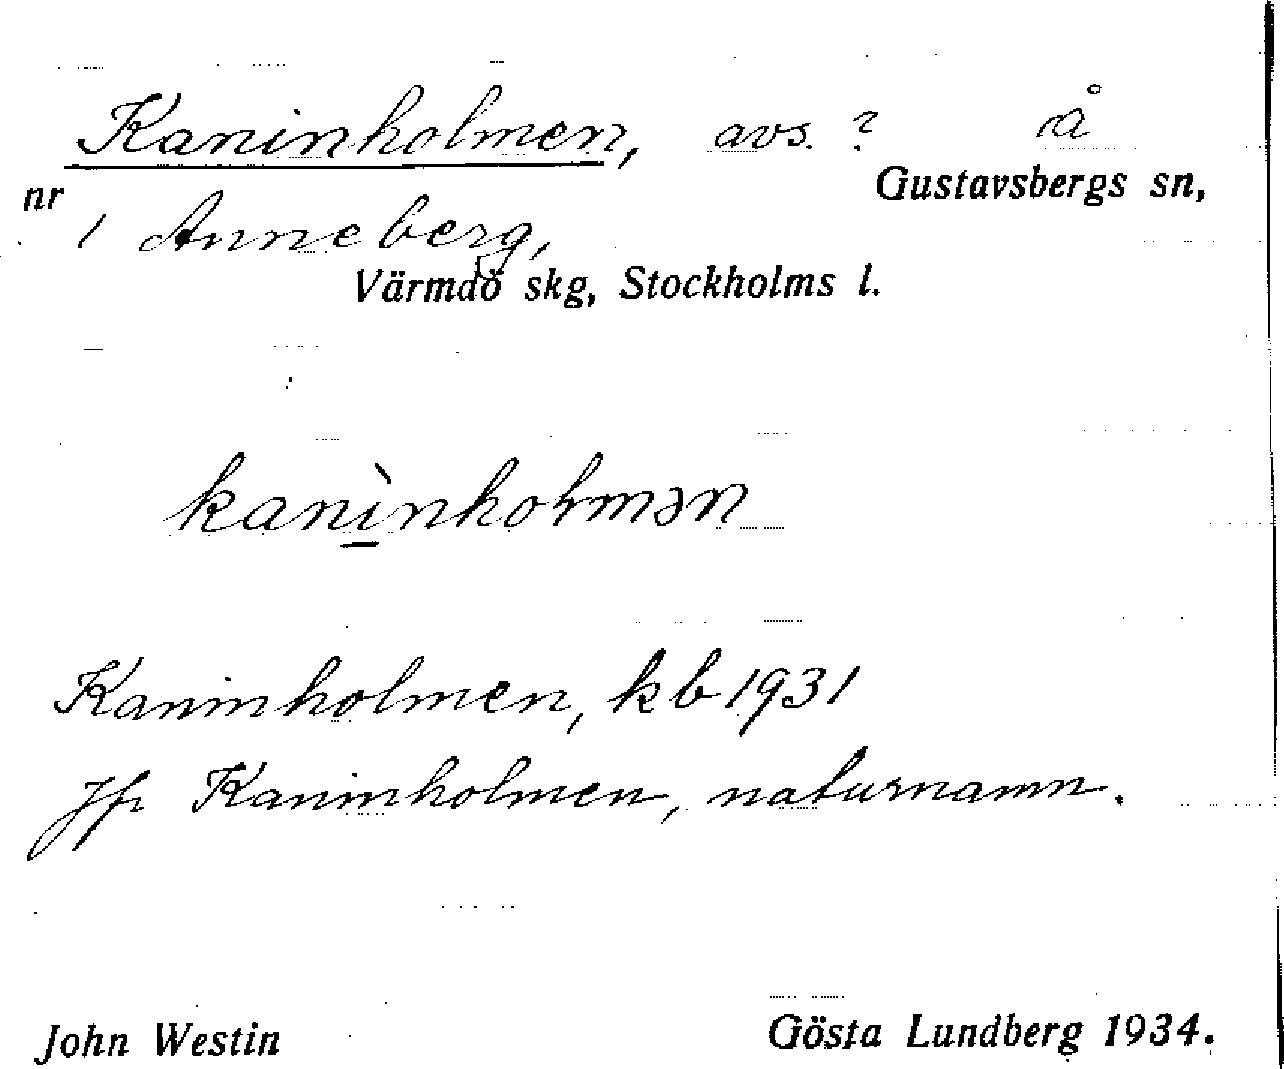 Kaninholmen, avs. ? å
Gustavsbergs sn,
nr 1 Anneberg,
Värmdö skg, Stockholms l.
kanìnholmən
Kaninholmen, kb 1931
Jfr Kaninholmen, naturnamn.
John Westin Gösta Lundberg 1934.